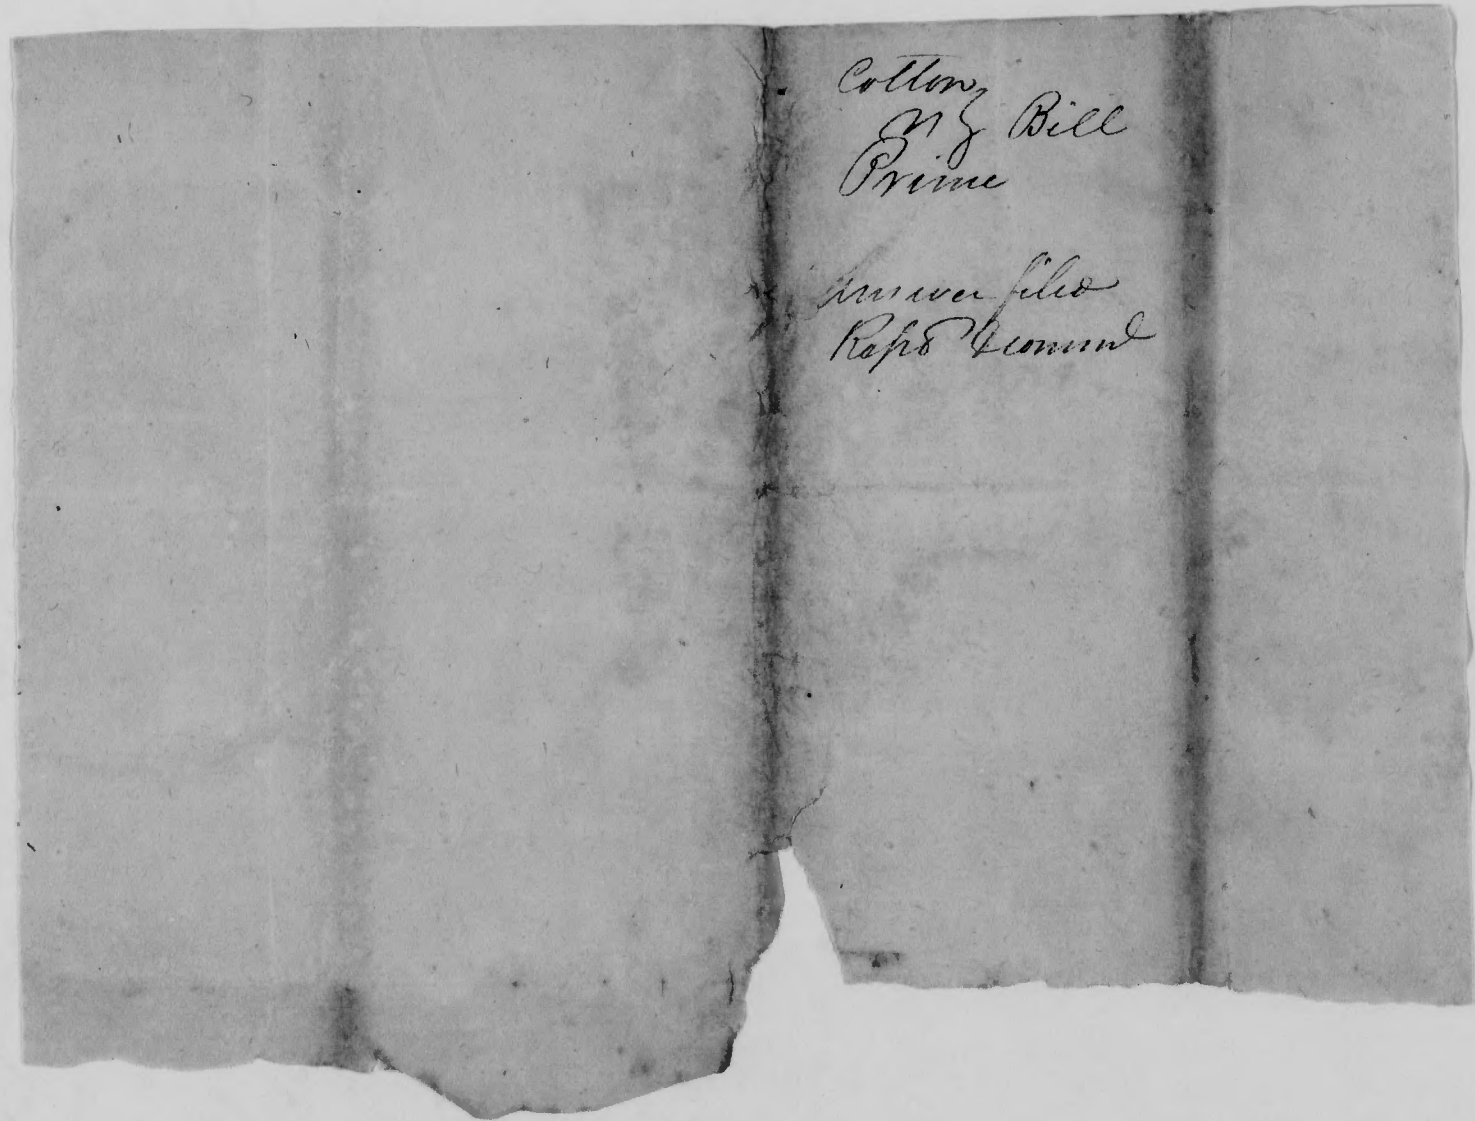 Cotton
vs } Bill
Prime
Answer filed
Repd &